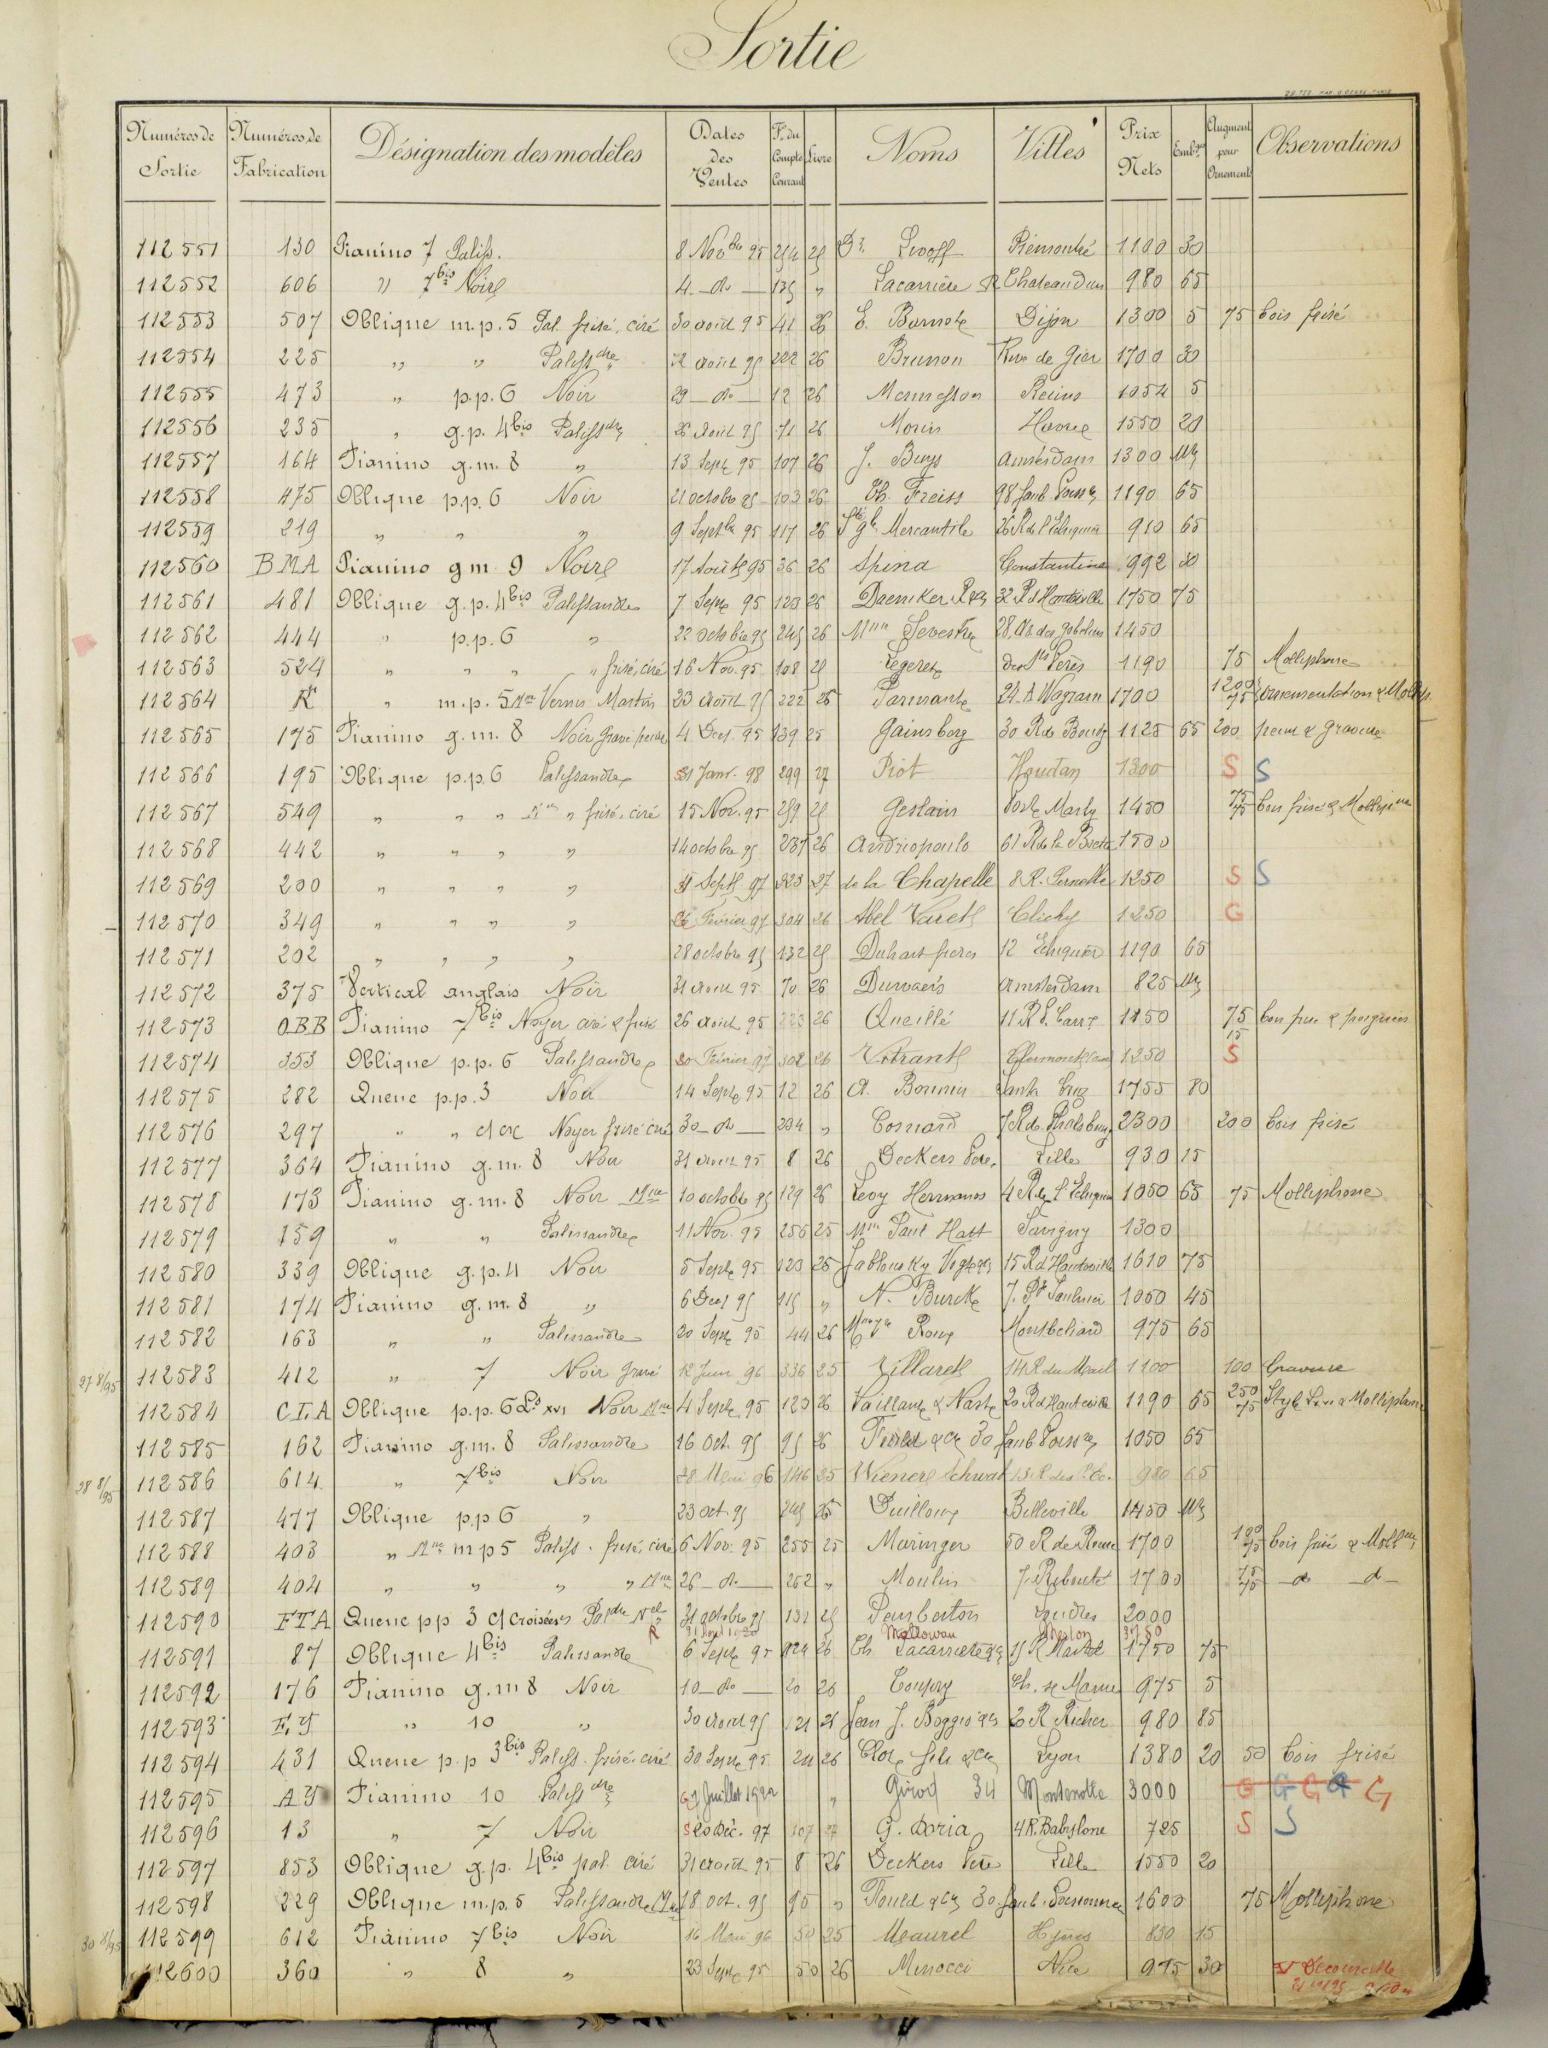 Sortie
Numéros de Sortie Numéros de Fabrication Désignation des modèles Dates des Ventes F. du Compte Courant Livre Noms Villes Prix Nets Emb. Augment pour Ornement Observations
112551 130 Pianino 7 Paliss. 8 Novbre 95 25 Dr. Lwoff 1100 30
112552 606 " 7bis Noire 4 do " Lacarrière Chateaudun 980 65
112553 507 Oblique m.p. 5 Pal. frisé, ciré 30 août 95 41 26 E. Dijon 1300 5 75 bois frisé
112554 225 " " Palissdre août 95 222 26 Brunon Rive de Gier 1700 30
112555 473 " p.p. 6 Noir 29 do 12 26 Mennesson Reims 1054 5
112556 235 " g.p. 4bis Palissdre 26 Août 95 71 26 Morin Havre 1550 20
112557 164 Pianino g.m. 8 " 13 Sept 95 107 26 J. Buys Amsterdam 1300
112558 475 Oblique p.p. 6 Noir 21 octobre 95 103 26 Th. Freiss 98 faub Poissre 1190 65
112559 219 " " " 9 Septbre 95 117 26 Sté gle Mercantile 26 R de l'Echiquier 910 65
112560 BMA Pianino g m 9 Noire 17 Août 95 36 26 Spina Constantine 992 30
112561 481 Oblique g.p. 4bis Palissandre 7 Sept 95 123 26 Daeniker 32 R d'Hauteville 1750 75
112562 444 " p.p. 6 " 22 octobre 95 245 26 Mme Sevestre 28 Av. des Gobelins 1450
112563 524 " " " " frisé, ciré 16 Nov. 95 108 25 Legeret des Sts Pères 1190 75 Molliphone
112564 " m.p. 5 Mne Vernis Martin 23 Août 95 222 26 24 A Wagram 1700 1200 75 ornementation & Molliph.
112565 175 Pianino g.m. 8 Noir gravé 4 Dec. 95 139 25 Gainsborg 30 R de Bondy 1125 65 200 gravure
112566 195 Oblique p.p. 6 Palissandre S 31 Janv. 98 299 27 Piot Houdan 1300 S S
112567 549 " " " Mne " frisé, ciré 15 Nov. 95 259 25 Geslain Port Marly 1450 75 75 bois frisé & Molliphne
112568 442 " " " " 14 octobre 95 237 26 Andriopoulo 61 R de la 1500
112569 200 " " " " Sept 97 323 27 de la Chapelle 8 R. Pernelle 1250 S S
112570 349 " " " " Février 97 304 26 Abel Varet Clichy 1250 G
112571 202 " " " " 28 octobre 95 132 25 Duhart frères 12 Echiquier 1190 65
112572 375 Vertical anglais Noir 31 Août 95 70 26 Durvaers Amsterdam 825
112573 OBB Pianino 7bis Noyer ciré & frisé 26 août 95 223 26 Queillé 11 R. 1150 75 15 bois frisé & poignées
112574 353 Oblique p.p. 6 Palissandre 20 Février 97 302 26 1250 S
112575 282 Queue p.p. 3 Noir 14 Sept 95 12 26 A. Santa Cruz 1755 80
112576 297 " " Noyer frisé ciré 30 do 294 " Cosnard 7 R de Phalsbourg 2300 200 bois frisé
112577 364 Pianino g.m. 8 Noir 31 août 95 8 26 Deckers Père Lille 930 15
112578 173 Pianino g.m. 8 Noir Mne 10 octobre 95 129 26 Levy Hermanos 4 R de l'Echiquier 1050 65 75 Molliphone
112579 159 " " Palissandre 11 Nov. 95 256 25 Mme Paul Hatt Savigny 1300
112580 339 Oblique g.p. 4 Noir 5 Sept 95 123 26 Jablonsky 15 R d'Hauteville 1610 75
112581 174 Pianino g.m. 8 " 6 Dec 95 115 " N. Burcke 7. Pt Saulnier 1050 45
112582 163 " " Palissandre 20 Sept 95 44 26 Roux Montbéliard 975 65
27 8/95 112583 412 " 7 Noir gravé 12 Juin 96 336 25 Villaret 14 R du Mail 1100 100 Gravure
112584 CLA Oblique p.p. 6 Ls XVI Noir Mne 4 Sept 95 120 26 Vaillant & 20 R d'Hauteville 1190 65 250 75 Style L. XVI & Molliphone
112585 162 Pianino g.m. 8 Palissandre 16 Oct. 95 95 26 Fould & Cie 30 faub Poissre 1050 65
28 8/95 112586 614 " 7bis Noir 28 Mai 96 146 25 Wiener & Schwab 980 65
112587 477 Oblique p.p 6 " 23 oct. 95 245 26 Duilloux Belleville 1450
112588 403 " Mne m p 5 Paliss. frisé, ciré 6 Nov. 95 255 25 Maringer 50 R de Rome 1700 75 bois frisé & Mollne
112589 404 " " " " Mne 26 do 262 " Moulin 7. R. 1700 75 75 do do
112590 FTA Queue pp 3 c/croisées Paldre 31 octobre 95 131 25 Pemberton Londres 2000
R Mallowan
112591 87 Oblique 4bis Palissandre 6 Sept 95 124 26 Ch. Lacarrière 15 R Martel 1750 75
112592 176 Pianino g.m 8 Noir 10 do 20 26 Coupry Ch. s/ Marne 975 5
112593 E.Y " 10 " 30 Août 95 121 26 Jean J. Boggio 20 R Richer 980 85
112594 431 Queue p.p 3bis Paliss. frisé, ciré 30 Sept 95 211 26 Clot fils & Cie Lyon 1380 20 50 bois frisé
112595 AY Pianino 10 Palissdre Juillet 1920 " Girod 34 Montenotte 3000 G G G G G
112596 13 " 7 Noir S 20 Déc. 97 107 27 G. Doria 4 R. Babylone 725 S S
112597 853 Oblique g.p. 4bis pal. ciré 31 août 95 8 26 Deckers Père Lille 1550 20
112598 229 Oblique m.p. 5 Palissandre Mne 18 oct. 95 95 " Fould & Cie 30 faub. Poissonnre 1600 75 Molliphone
30 8/95 112599 612 Pianino 7bis Noir 16 Mai 96 50 25 Maurel Hyères 850 15
112600 360 " 8 " 23 Sept 95 50 26 Minocci Nice 975 30 Decourcelle